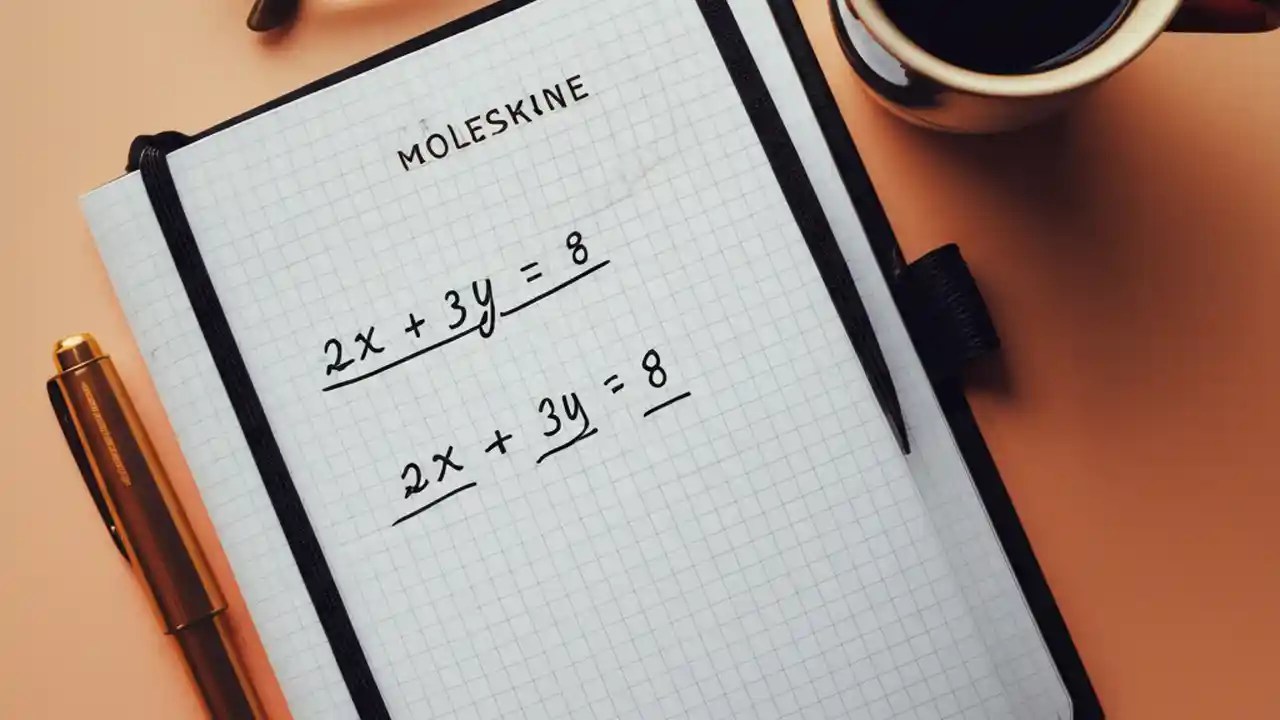 MOLESKINE
2x + 3y = 8
2x + 3y = 8